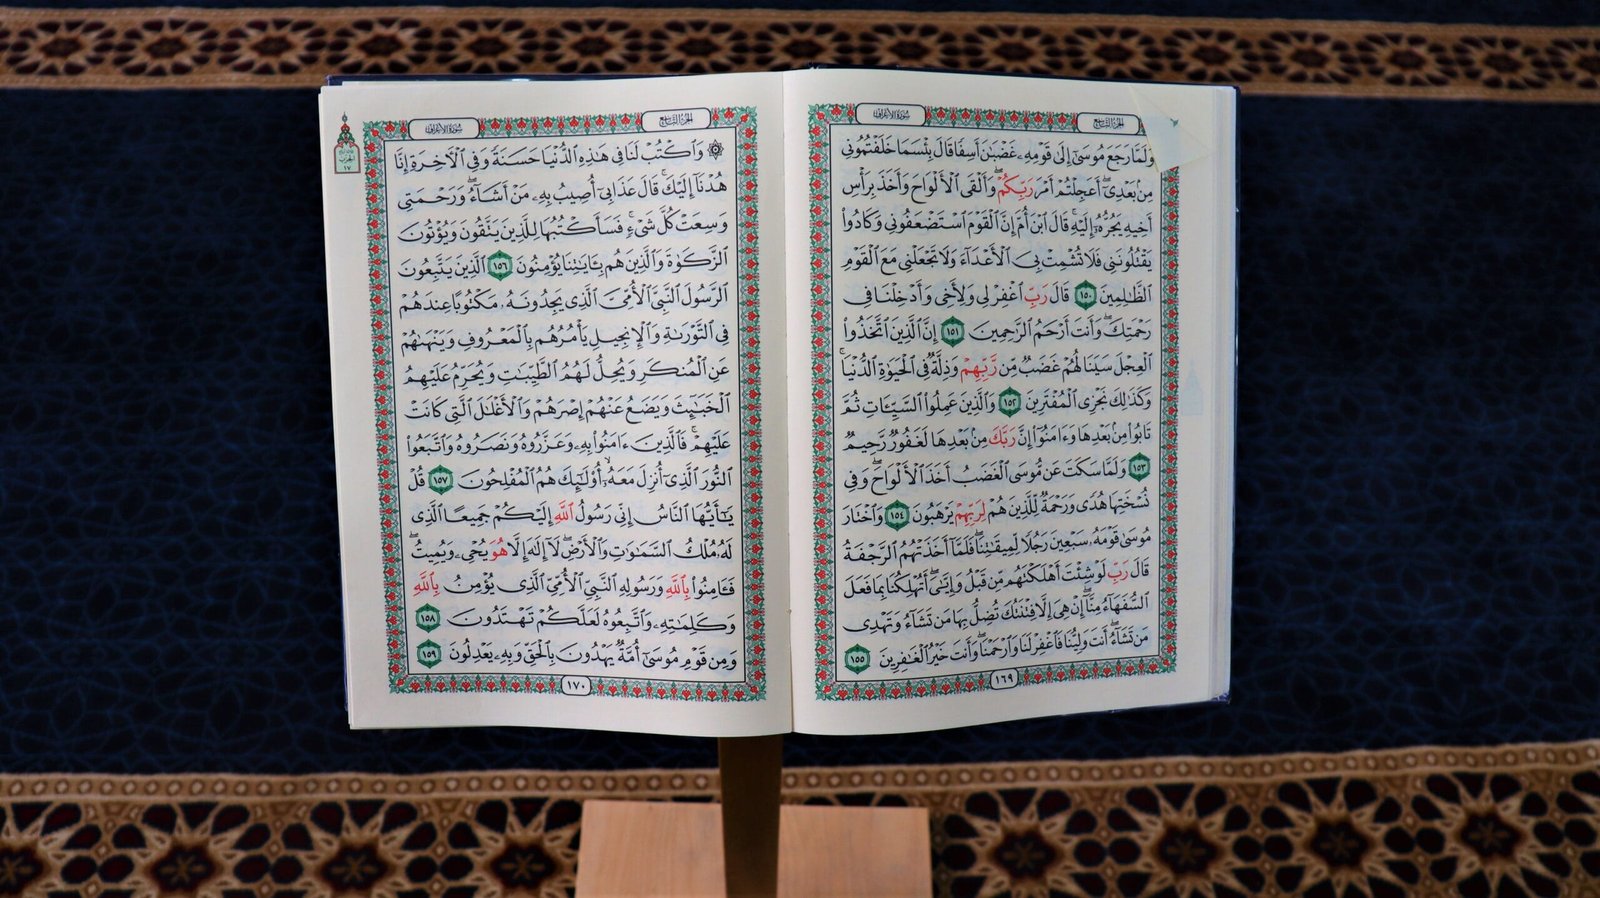 الجزء التاسع
سورة الأعراف
وَلَمَّا رَجَعَ مُوسَىٰٓ إِلَىٰ قَوْمِهِۦ غَضْبَٰنَ أَسِفًا قَالَ بِئْسَمَا خَلَفْتُمُونِى
مِنۢ بَعْدِىٓۖ أَعَجِلْتُمْ أَمْرَ رَبِّكُمْۖ وَأَلْقَى ٱلْأَلْوَاحَ وَأَخَذَ بِرَأْسِ
أَخِيهِ يَجُرُّهُۥٓ إِلَيْهِۚ قَالَ ٱبْنَ أُمَّ إِنَّ ٱلْقَوْمَ ٱسْتَضْعَفُونِى وَكَادُوا۟
يَقْتُلُونَنِى فَلَا تُشْمِتْ بِىَ ٱلْأَعْدَآءَ وَلَا تَجْعَلْنِى مَعَ ٱلْقَوْمِ
ٱلظَّٰلِمِينَ ١٥٠ قَالَ رَبِّ ٱغْفِرْ لِى وَلِأَخِى وَأَدْخِلْنَا فِى
رَحْمَتِكَۖ وَأَنتَ أَرْحَمُ ٱلرَّٰحِمِينَ ١٥١ إِنَّ ٱلَّذِينَ ٱتَّخَذُوا۟
ٱلْعِجْلَ سَيَنَالُهُمْ غَضَبٌ مِّن رَّبِّهِمْ وَذِلَّةٌ فِى ٱلْحَيَوٰةِ ٱلدُّنْيَاۚ
وَكَذَٰلِكَ نَجْزِى ٱلْمُفْتَرِينَ ١٥٢ وَٱلَّذِينَ عَمِلُوا۟ ٱلسَّيِّـَٔاتِ ثُمَّ
تَابُوا۟ مِنۢ بَعْدِهَا وَءَامَنُوٓا۟ إِنَّ رَبَّكَ مِنۢ بَعْدِهَا لَغَفُورٌ رَّحِيمٌ
١٥٣ وَلَمَّا سَكَتَ عَن مُّوسَى ٱلْغَضَبُ أَخَذَ ٱلْأَلْوَاحَۖ وَفِى
نُسْخَتِهَا هُدًى وَرَحْمَةٌ لِّلَّذِينَ هُمْ لِرَبِّهِمْ يَرْهَبُونَ ١٥٤ وَٱخْتَارَ
مُوسَىٰ قَوْمَهُۥ سَبْعِينَ رَجُلًا لِّمِيقَٰتِنَاۖ فَلَمَّآ أَخَذَتْهُمُ ٱلرَّجْفَةُ
قَالَ رَبِّ لَوْ شِئْتَ أَهْلَكْتَهُم مِّن قَبْلُ وَإِيَّٰىَۖ أَتُهْلِكُنَا بِمَا فَعَلَ
ٱلسُّفَهَآءُ مِنَّآۖ إِنْ هِىَ إِلَّا فِتْنَتُكَ تُضِلُّ بِهَا مَن تَشَآءُ وَتَهْدِى
مَن تَشَآءُۖ أَنتَ وَلِيُّنَا فَٱغْفِرْ لَنَا وَٱرْحَمْنَاۖ وَأَنتَ خَيْرُ ٱلْغَٰفِرِينَ ١٥٥
١٦٩
الجزء التاسع
سورة الأعراف
الحزب
١٧
۞ وَٱكْتُبْ لَنَا فِى هَٰذِهِ ٱلدُّنْيَا حَسَنَةً وَفِى ٱلْءَاخِرَةِ إِنَّا
هُدْنَآ إِلَيْكَۚ قَالَ عَذَابِىٓ أُصِيبُ بِهِۦ مَنْ أَشَآءُۖ وَرَحْمَتِى
وَسِعَتْ كُلَّ شَىْءٍۚ فَسَأَكْتُبُهَا لِلَّذِينَ يَتَّقُونَ وَيُؤْتُونَ
ٱلزَّكَوٰةَ وَٱلَّذِينَ هُم بِـَٔايَٰتِنَا يُؤْمِنُونَ ١٥٦ ٱلَّذِينَ يَتَّبِعُونَ
ٱلرَّسُولَ ٱلنَّبِىَّ ٱلْأُمِّىَّ ٱلَّذِى يَجِدُونَهُۥ مَكْتُوبًا عِندَهُمْ
فِى ٱلتَّوْرَىٰةِ وَٱلْإِنجِيلِ يَأْمُرُهُم بِٱلْمَعْرُوفِ وَيَنْهَىٰهُمْ
عَنِ ٱلْمُنكَرِ وَيُحِلُّ لَهُمُ ٱلطَّيِّبَٰتِ وَيُحَرِّمُ عَلَيْهِمُ
ٱلْخَبَٰٓئِثَ وَيَضَعُ عَنْهُمْ إِصْرَهُمْ وَٱلْأَغْلَٰلَ ٱلَّتِى كَانَتْ
عَلَيْهِمْۚ فَٱلَّذِينَ ءَامَنُوا۟ بِهِۦ وَعَزَّرُوهُ وَنَصَرُوهُ وَٱتَّبَعُوا۟
ٱلنُّورَ ٱلَّذِىٓ أُنزِلَ مَعَهُۥٓۙ أُو۟لَٰٓئِكَ هُمُ ٱلْمُفْلِحُونَ ١٥٧ قُلْ
يَٰٓأَيُّهَا ٱلنَّاسُ إِنِّى رَسُولُ ٱللَّهِ إِلَيْكُمْ جَمِيعًا ٱلَّذِى
لَهُۥ مُلْكُ ٱلسَّمَٰوَٰتِ وَٱلْأَرْضِۖ لَآ إِلَٰهَ إِلَّا هُوَ يُحْىِۦ وَيُمِيتُۖ
فَـَٔامِنُوا۟ بِٱللَّهِ وَرَسُولِهِ ٱلنَّبِىِّ ٱلْأُمِّىِّ ٱلَّذِى يُؤْمِنُ بِٱللَّهِ
وَكَلِمَٰتِهِۦ وَٱتَّبِعُوهُ لَعَلَّكُمْ تَهْتَدُونَ ١٥٨
وَمِن قَوْمِ مُوسَىٰٓ أُمَّةٌ يَهْدُونَ بِٱلْحَقِّ وَبِهِۦ يَعْدِلُونَ ١٥٩
١٧٠